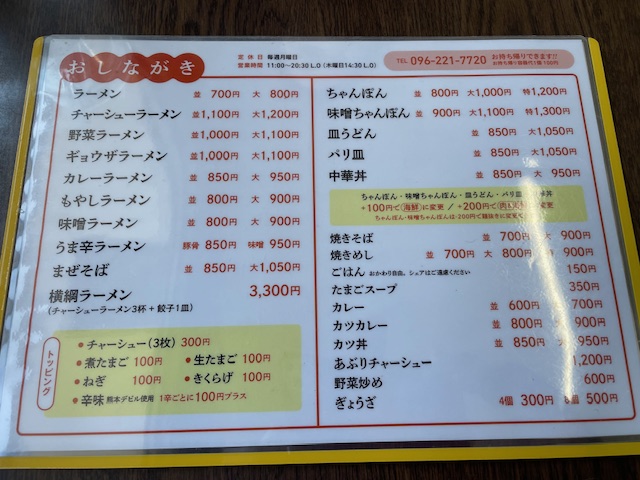 おしながき
定休日 毎週月曜日
営業時間 11:00〜20:30 L.O (木曜日14:30 L.O)
TEL 096-221-7720 お持ち帰りできます!!
お持ち帰り容器代1個100円
ラーメン 並 700円 大 800円
チャーシューラーメン 並1,100円 大1,200円
野菜ラーメン 並1,000円 大1,100円
ギョウザラーメン 並1,000円 大1,100円
カレーラーメン 並 850円 大 950円
もやしラーメン 並 800円 大 900円
味噌ラーメン 並 800円 大 900円
うま辛ラーメン 豚骨 850円 味噌 950円
まぜそば 並 850円 大1,050円
横綱ラーメン 3,300円
(チャーシューラーメン3杯+餃子1皿)
トッピング
・チャーシュー(3枚) 300円
・煮たまご 100円 ・生たまご 100円
・ねぎ 100円 ・きくらげ 100円
・辛味 熊本デビル使用 1辛ごとに100円プラス
ちゃんぽん 並 800円 大1,000円 特1,200円
味噌ちゃんぽん 並 900円 大1,100円 特1,300円
皿うどん 並 850円 大1,050円
パリ皿 並 850円 大1,050円
中華丼 並 850円 大 950円
ちゃんぽん・味噌ちゃんぽん・皿うどん・パリ皿・丼
+100円で海鮮に変更 / +200円で に変更
ちゃんぽん・味噌ちゃんぽんは-200円で麺抜きに変更できます
焼きそば 並 700円 大 900円
焼きめし 並 700円 大 800円 特 900円
ごはん おかわり自由。シェアはご遠慮ください 150円
たまごスープ 350円
カレー 並 600円 大 700円
カツカレー 並 800円 大 900円
カツ丼 並 850円 大 950円
あぶりチャーシュー 1,200円
野菜炒め 600円
ぎょうざ 4個 300円 8個 500円